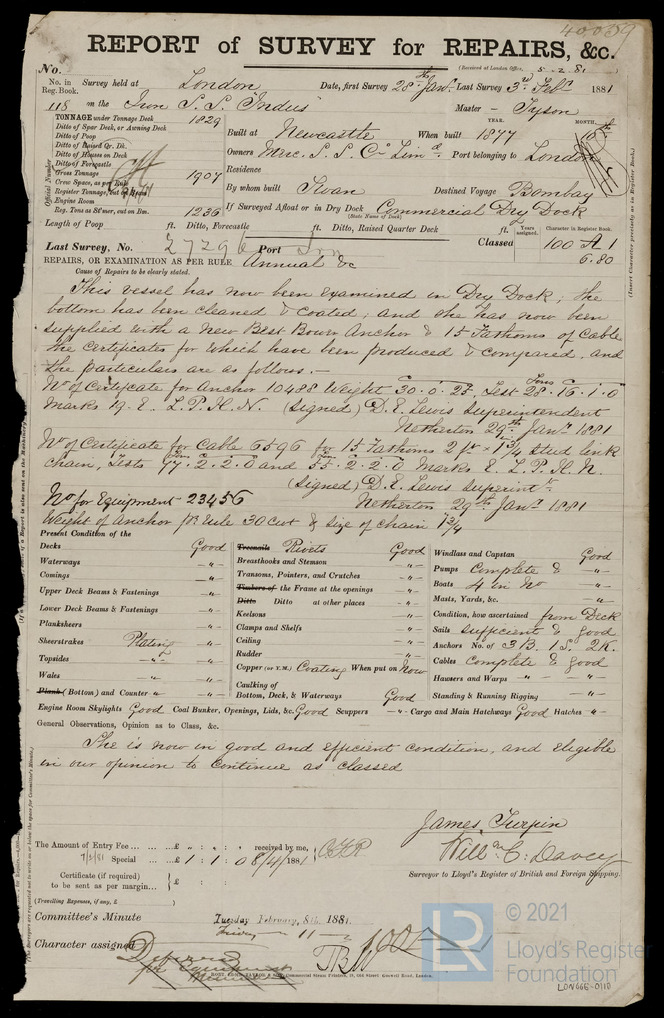 40059
REPORT of SURVEY for REPAIRS, &c.
(Received at London Office, 5-2-81)
No.
No. in Reg. Book. Survey held at London Date, first Survey 28th Jany. Last Survey 3rd Feby 1881
118 on the Iron S.S. "Indus" Master - Tyson
TONNAGE under Tonnage Deck 1829
Ditto of Spar Deck, or Awning Deck
Ditto of Poop
Ditto of Raised Qr. Dk.
Ditto of Houses on Deck
Ditto of Forecastle
Gross Tonnage 1907
Crew Space, as per Rule
Register Tonnage, cut on Beam
Engine Room
Reg. Tons as St'mer, cut on Bm. 1236
Official Number
YEAR. MONTH.
Built at Newcastle When built 1877
Owners Merc. S. S. Co Limd. Port belonging to London
Residence
By whom built Swan Destined Voyage Bombay
If Surveyed Afloat or in Dry Dock Commercial Dry Dock
(State Name of Dock)
Length of Poop ft. Ditto, Forecastle ft. Ditto, Raised Quarter Deck ft.
Years assigned. Character in Register Book.
Last Survey, No. 27296 Port Lon Classed 100 A 1
6.80
REPAIRS, OR EXAMINATION AS PER RULE Annual &c
Cause of Repairs to be clearly stated.
This vessel has now been examined in Dry Dock; the
bottom has been cleaned & coated; and she has now been
supplied with a New Best Bower Anchor & 15 Fathoms of Cable
the Certificates for which have been produced & compared, and
the particulars are as follows.—
No of Certificate for Anchor 10488 Weight 30.0.25, Test Tons 28.16.1.0
Marks N. E. L.P.H.N. (signed) D. E. Lewis Superintendent
Netherton 29th Jany 1881
No of Certificate for Cable 6596 for 15 Fathoms 2 ft x 1 3/4 Stud link
chain, Tests 77.2.2.0 and 55.2.2.0 Marks E. L.P.H.N.
(Signed) D. E. Lewis Superintt.
No for Equipment 23456 Netherton 29th Jany 1881
Weight of Anchor pr Rule 30cwt & size of chain 1 3/4
Present Condition of the
Decks Good
Waterways -"-
Comings -"-
Upper Deck Beams & Fastenings -"-
Lower Deck Beams & Fastenings -"-
Planksheers
Sheerstrakes Plating -"-
Topsides -"- -"-
Wales -"- -"-
Plank (Bottom) and Counter -"- -"-
Treenails Rivets Good
Breasthooks and Stemson -"-
Transoms, Pointers, and Crutches -"-
Timbers of the Frame at the openings -"-
Ditto Ditto at other places -"-
Keelsons -"-
Clamps and Shelfs -"-
Ceiling -"-
Rudder -"-
Copper (or Y.M.) Coating When put on Now
Caulking of
Bottom, Deck, & Waterways Good
Windlass and Capstan Good
Pumps Complete & -"-
Boats 4 in No -"-
Masts, Yards, &c. -"-
Condition, how ascertained from Deck
Sails sufficient & good
Anchors No. of 3 B. 1 S. 2 K.
Cables Complete & good
Hawsers and Warps -"- -"-
Standing & Running Rigging -"-
Engine Room Skylights Good Coal Bunker, Openings, Lids, &c. Good Scuppers -"- Cargo and Main Hatchways Good Hatches -"-
General Observations, Opinion as to Class, &c.
She is now in good and efficient condition, and eligible
in our opinion to continue as classed
James Turpin
Willm C. Davey
Surveyor to Lloyd's Register of British and Foreign Shipping.
The Amount of Entry Fee ... £ " : " : " received by me,
7/2/81 Special ... £ 1 : 1 : 0 8/4/1881
Certificate (if required) to be sent as per margin... £
(Travelling Expenses, if any, £ )
Committee's Minute Tuesday February, 8th 1881.
Friday -"- 11 -"-
Character assigned Deferred
for Equipment
© 2021
Lloyd's Register
Foundation
LDN666-0110